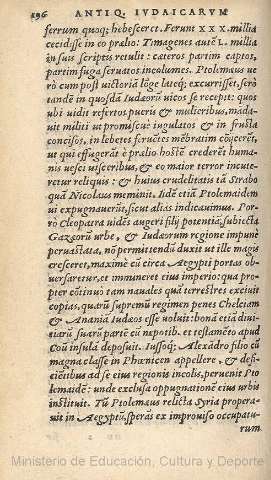 196 ANTIQ. IVDAICARVM
ferrum quoq; hebesceret. Ferunt XXX. millia
cecidisse in eo prælio: Timagenes autē L. millia
in suis scriptis retulit: cæteros partim captos,
partim fuga seruatos incolumes. Ptolemæus ue
rò cum post uictoriā lōgè latéq; excurrisset, serò
tandē in quosdā Iudæorū uicos se recepit: quos
ubi uidit refertos pueris & mulieribus, manda-
uit militi ut promiscuè iugulatos & in frusta
concisos, in lebetes feruētes mēbratim cōijceret,
ut qui effugerāt è prælio hostē crederēt huma-
nis uesci uisceribus, & eo maior terror incute-
retur reliquis: & huius crudelitatis tā Strabo
quā Nicolaus meminit. Idē etiā Ptolemaidem
ui expugnauerūt, sicut aliàs indicauimus. Por-
rò Cleopatra uidēs augeri filij potentiā, subiecta
Gazæorū urbe, & Iudæorum regione impunè
peruastata, nō permittendū duxit ut ille magis
cresceret, maximè cū circa Aegypti portas ob-
uersaretur, et immineret eius imperio: qua pro-
pter cōtinuò tam nauales quā terrestres exciuit
copias, quarū supremū regimen penes Chelciam
& Ananiā Iudæos esse uoluit: bonā etiā diui-
tiarū suarū partē cū nepotib. et testamēto apud
Coū insulā deposuit. Iussoq; Alexādro filio cū
magna classe in Phœnicen appellere, & defi-
cientibus ad se eius regionis incolis, peruenit Pto
lemaidē: unde exclusa oppugnatione eius urbis
instituit. Tū Ptolemæus relicta Syria propera-
uit in Aegyptū, sperās ex improuiso occupatu-
rum
Ministerio de Educación, Cultura y Deporte